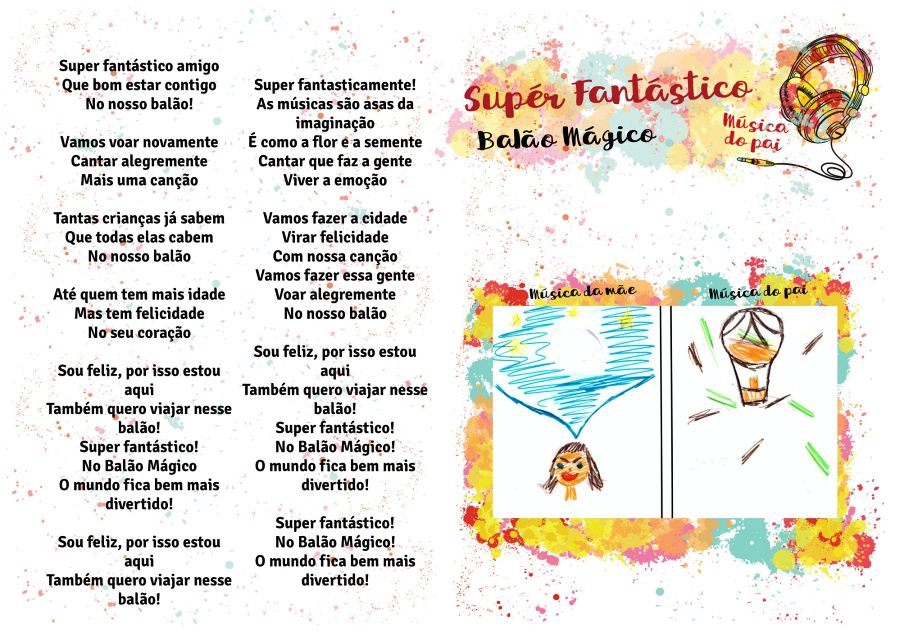 Super fantástico amigo
Que bom estar contigo
No nosso balão!
Vamos voar novamente
Cantar alegremente
Mais uma canção
Tantas crianças já sabem
Que todas elas cabem
No nosso balão
Até quem tem mais idade
Mas tem felicidade
No seu coração
Sou feliz, por isso estou
aqui
Também quero viajar nesse
balão!
Super fantástico!
No Balão Mágico
O mundo fica bem mais
divertido!
Sou feliz, por isso estou
aqui
Também quero viajar nesse
balão!
Super fantasticamente!
As músicas são asas da
imaginação
É como a flor e a semente
Cantar que faz a gente
Viver a emoção
Vamos fazer a cidade
Virar felicidade
Com nossa canção
Vamos fazer essa gente
Voar alegremente
No nosso balão
Sou feliz, por isso estou
aqui
Também quero viajar nesse
balão!
Super fantástico!
No Balão Mágico!
O mundo fica bem mais
divertido!
Super fantástico!
No Balão Mágico!
O mundo fica bem mais
divertido!
Supér Fantástico
Balão Mágico
Música
do pai
Música da mãe
Música do pai